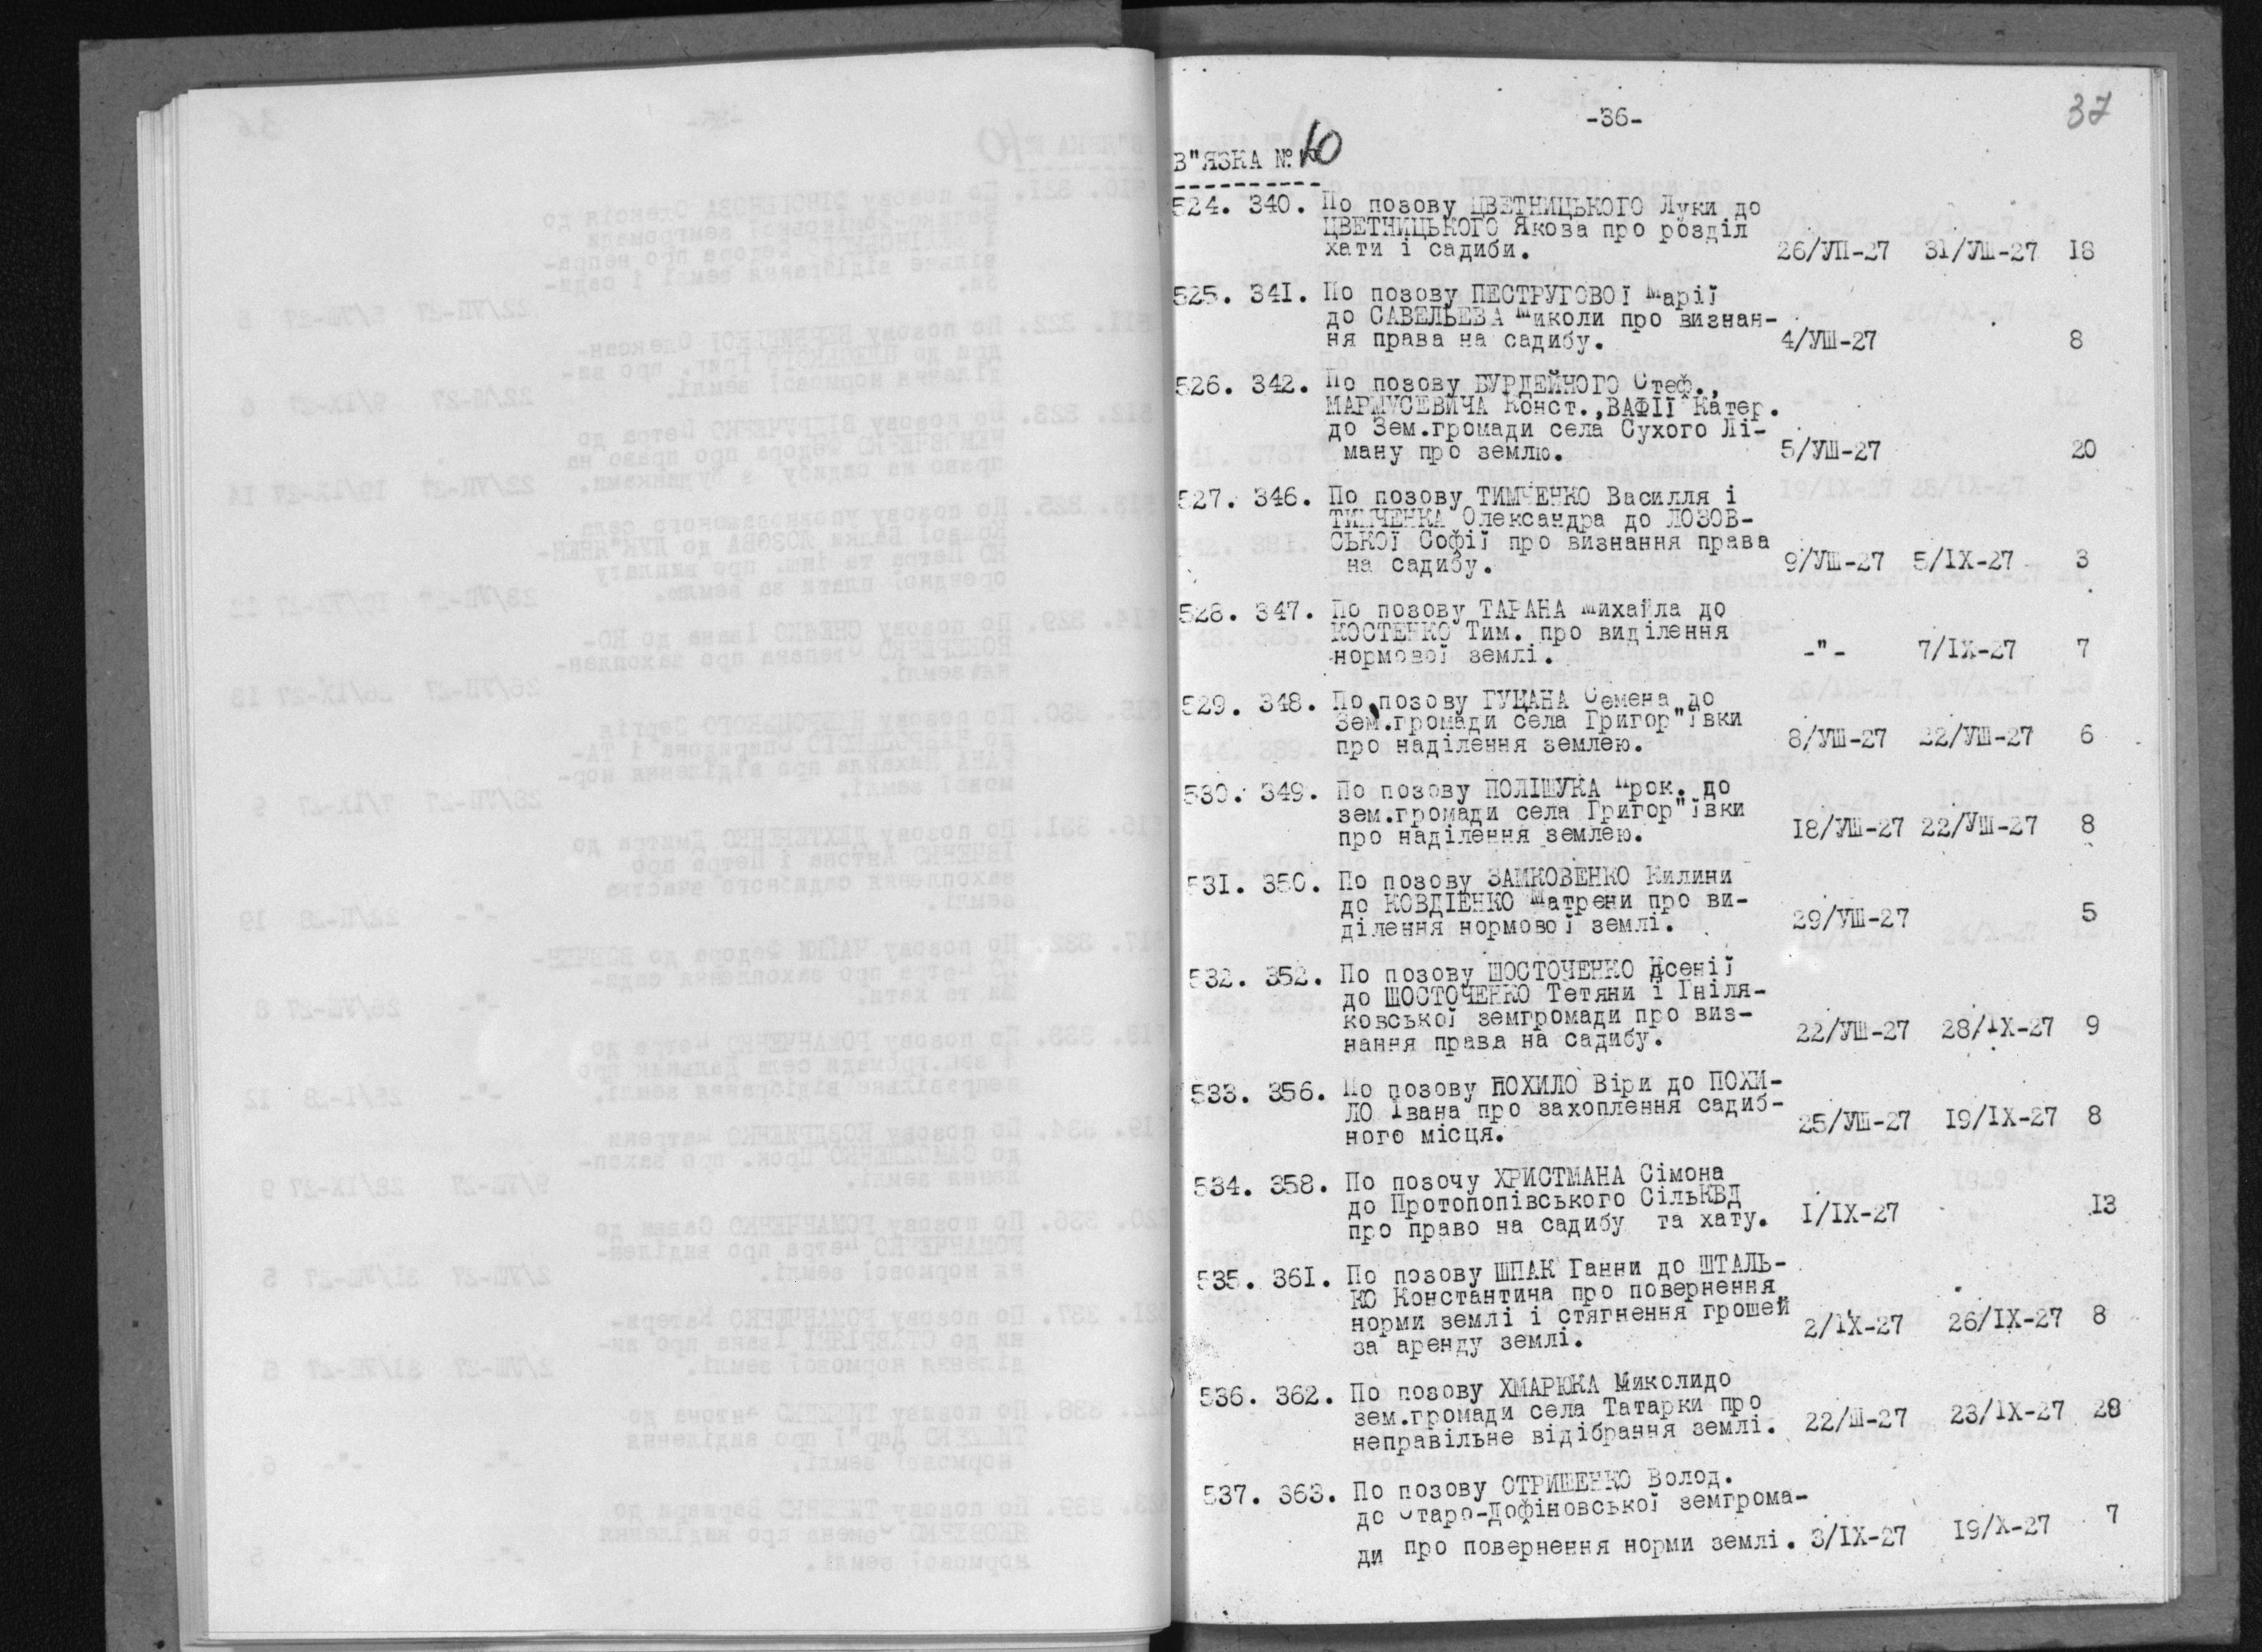 -36-
37
В"ЯЗКА №. 10
524. 340. По позову ЦВЕТНИЦЬКОГО Луки до
ЦВЕТНИЦЬКОГО Якова про розділ
хати і садиби. 26/УП-27 31/УШ-27 18
525. 341. По позову ПЕСТРУГОВОЇ Марії
до САВЕЛЬЕВА Миколи про визнан-
ня права на садибу. 4/УШ-27 8
526. 342. По позову БУРДЕЙНОГО Стеф.,
МАРМУСЕВИЧА Конст.,ВАФІЇ Катер.
до Зем.громади села Сухого Лі-
ману про землю. 5/УШ-27 20
527. 346. По позову ТИМЧЕНКО Василля і
ТИМЧЕНКА Олександра до ЛОЗОВ-
СЬКОЇ Софії про визнання права
на садибу. 9/УШ-27 5/IX-27 3
528. 347. По позову ТАРАНА Михайла до
КОСТЕНКО Тим. про виділення
нормової землі. -"- 7/IX-27 7
529. 348. По позову ГУЦАНА Семена до
Зем.громади села Григор"ївки
про наділення землею. 8/УШ-27 22/УШ-27 6
530. 349. По позову ПОЛІЩУКА Прок. до
зем.громади села Григор"ївки
про наділення землею. 18/УШ-27 22/УШ-27 8
531. 350. По позову ЗАМКОВЕНКО Килини
до КОВДІЕНКО Матрени про ви-
ділення нормової землі. 29/УШ-27 5
532. 352. По позову ШОСТОЧЕНКО Ксенії
до ШОСТОЧЕНКО Тетяни і Гніля-
ковської земгромади про виз-
нання права на садибу. 22/УШ-27 28/IX-27 9
533. 356. По позову ПОХИЛО Віри до ПОХИ-
ЛО Івана про захоплення садиб-
ного місця. 25/УШ-27 19/IX-27 8
534. 358. По позочу ХРИСТМАНА Сімона
до Протопопівського СільКВД
про право на садибу та хату. I/IX-27 13
535. 361. По позову ШПАК Ганни до ШТАЛЬ-
КО Константина про повернення
норми землі і стягнення грошей
за аренду землі. 2/IX-27 26/IX-27 8
536. 362. По позову ХМАРЮКА Миколидо
зем.громади села Татарки про
неправільне відібрання землі. 22/Ш-27 23/IX-27 28
537. 363. По позову ОТРИШЕНКО Волод.
до Старо-Дофіновської земгрома-
ди про повернення норми землі. 3/IX-27 19/X-27 7